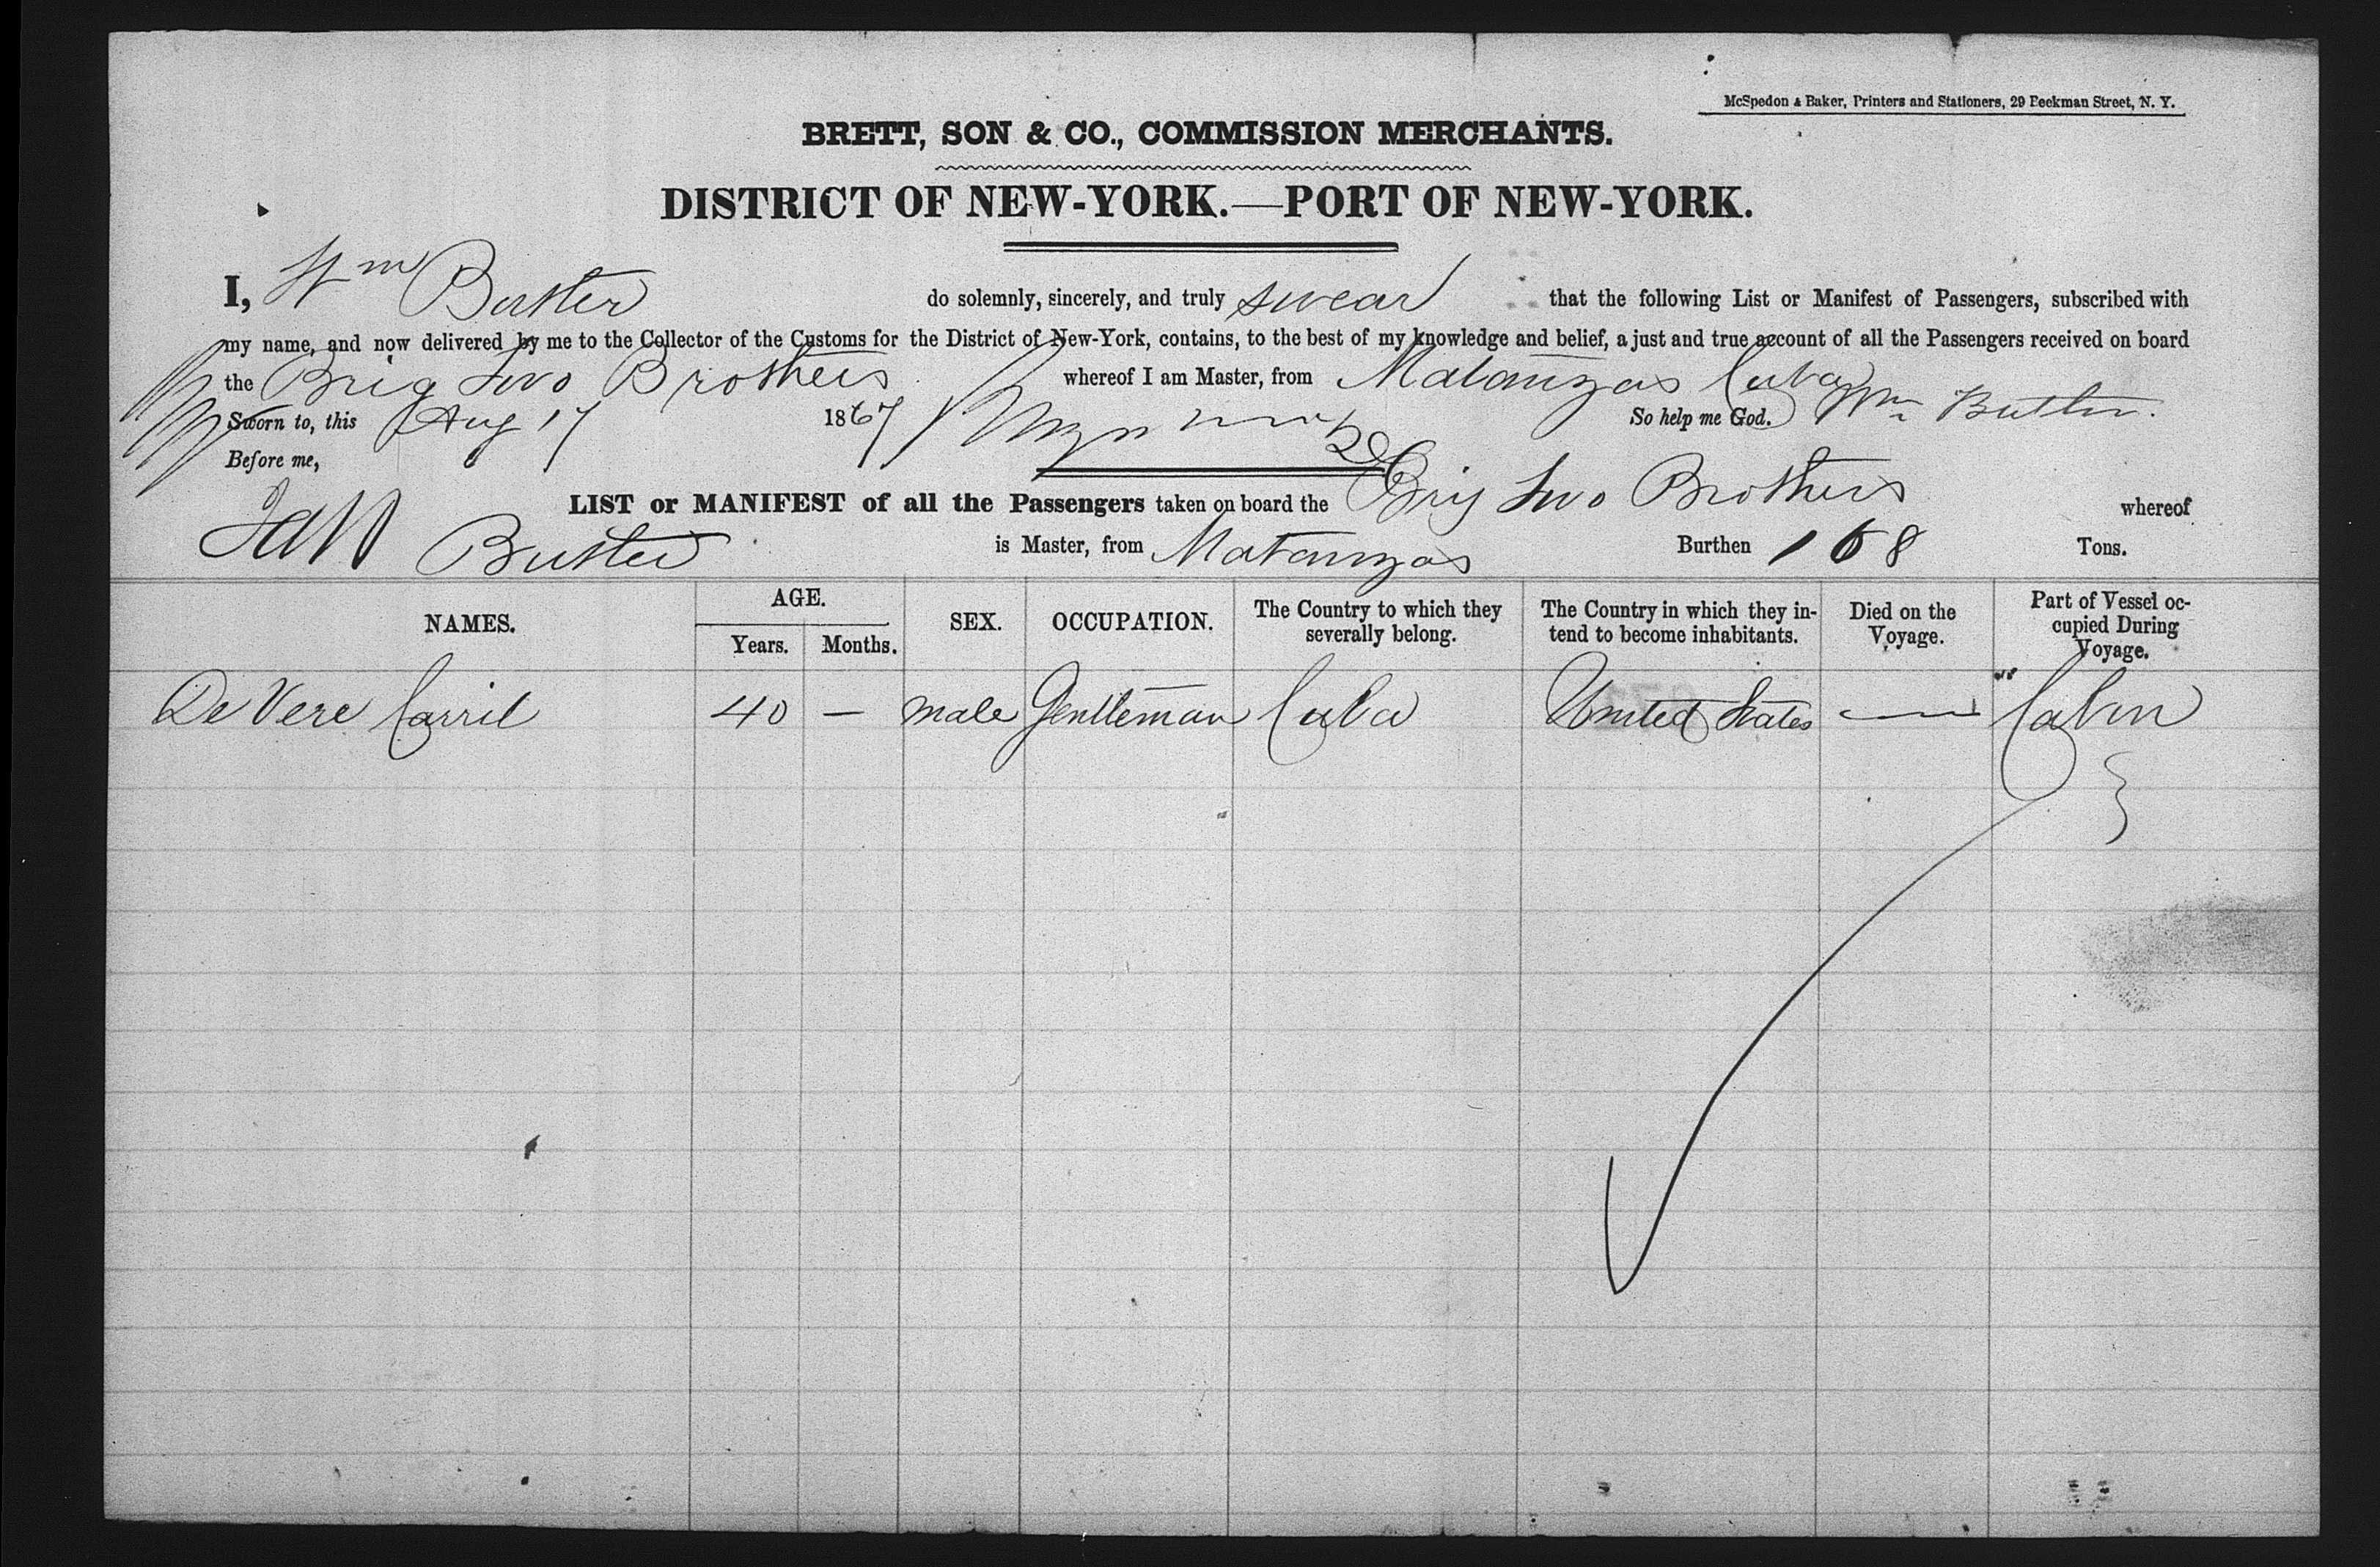 McSpedon & Baker, Printers and Stationers, 29 Beekman Street, N. Y.
BRETT, SON & CO., COMMISSION MERCHANTS.
DISTRICT OF NEW-YORK.—PORT OF NEW-YORK.
I, Wm Butler do solemnly, sincerely, and truly swear that the following List or Manifest of Passengers, subscribed with
my name, and now delivered by me to the Collector of the Customs for the District of New-York, contains, to the best of my knowledge and belief, a just and true account of all the Passengers received on board
the Brig Two Brothers whereof I am Master, from Matanzas Cuba
Sworn to, this Aug 17 1867 So help me God. Wm Butler.
Before me,
LIST or MANIFEST of all the Passengers taken on board the Brig Two Brothers whereof
Butler is Master, from Matanzas Burthen 168 Tons.
NAMES. AGE. Years. Months. SEX. OCCUPATION. The Country to which they severally belong. The Country in which they intend to become inhabitants. Died on the Voyage. Part of Vessel occupied During Voyage.
De Vere Carril 40 — male Gentleman Cuba United States — Cabin